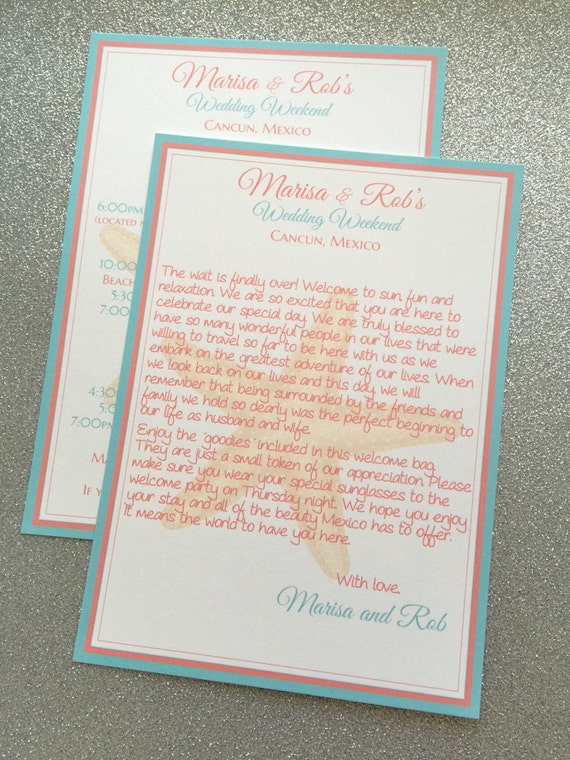 Marisa & Rob's
Wedding Weekend
Cancun, Mexico
6:00pm
(located
10:00
Beach
5:30
7:00
4:30
5:0
7:00pm
If
Marisa & Rob's
Wedding Weekend
Cancun, Mexico
The wait is finally over! Welcome to sun, fun and
relaxation. We are so excited that you are here to
celebrate our special day. We are truly blessed to
have so many wonderful people in our lives that were
willing to travel so far to be here with us as we
embark on the greatest adventure of our lives. When
we look back on our lives and this day, we will
remember that being surrounded by the friends and
family we hold so dearly was the perfect beginning to
our life as husband and wife.
Enjoy the 'goodies' included in this welcome bag.
They are just a small token of our appreciation. Please
make sure you wear your special sunglasses to the
welcome party on Thursday night. We hope you enjoy
your stay and all of the beauty Mexico has to offer.
It means the world to have you here.
With love,
Marisa and Rob